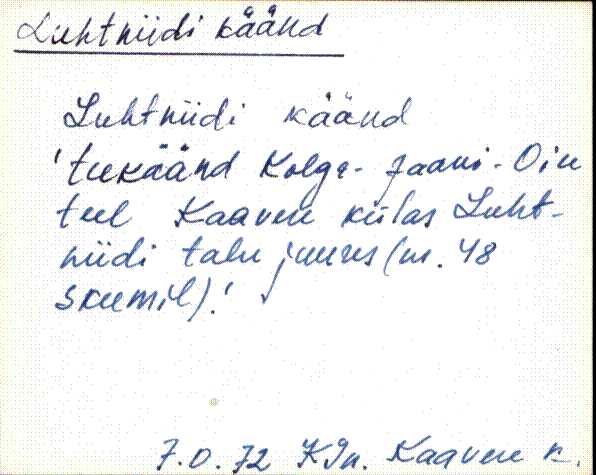 Luhtniidi käänd
Luhtniidi käänd
'teekäänd Kolga-Jaani-Oiu
teel Kaavere külas Luht-
niidi talu juures (nr. 48
skeemil).'
7.0.72 KJn. Kaavere k.